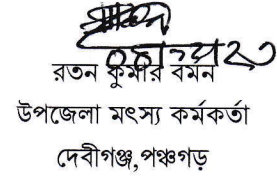 রতন কুমার বর্মন
উপজেলা মৎস্য কর্মকর্তা
দেবীগঞ্জ,পঞ্চগড়